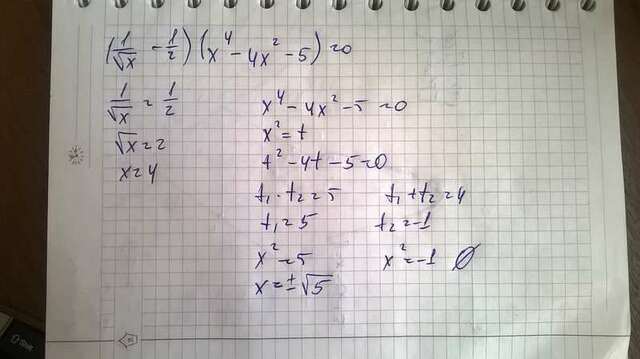 (1/√x - 1/2)(x⁴ - 4x² - 5) = 0
1/√x = 1/2
√x = 2
x = 4
x⁴ - 4x² - 5 = 0
x² = t
t² - 4t - 5 = 0
t₁ · t₂ = 5 t₁ + t₂ = 4
t₁ = 5 t₂ = -1
x² = 5 x² = -1 ∅
x = ±√5